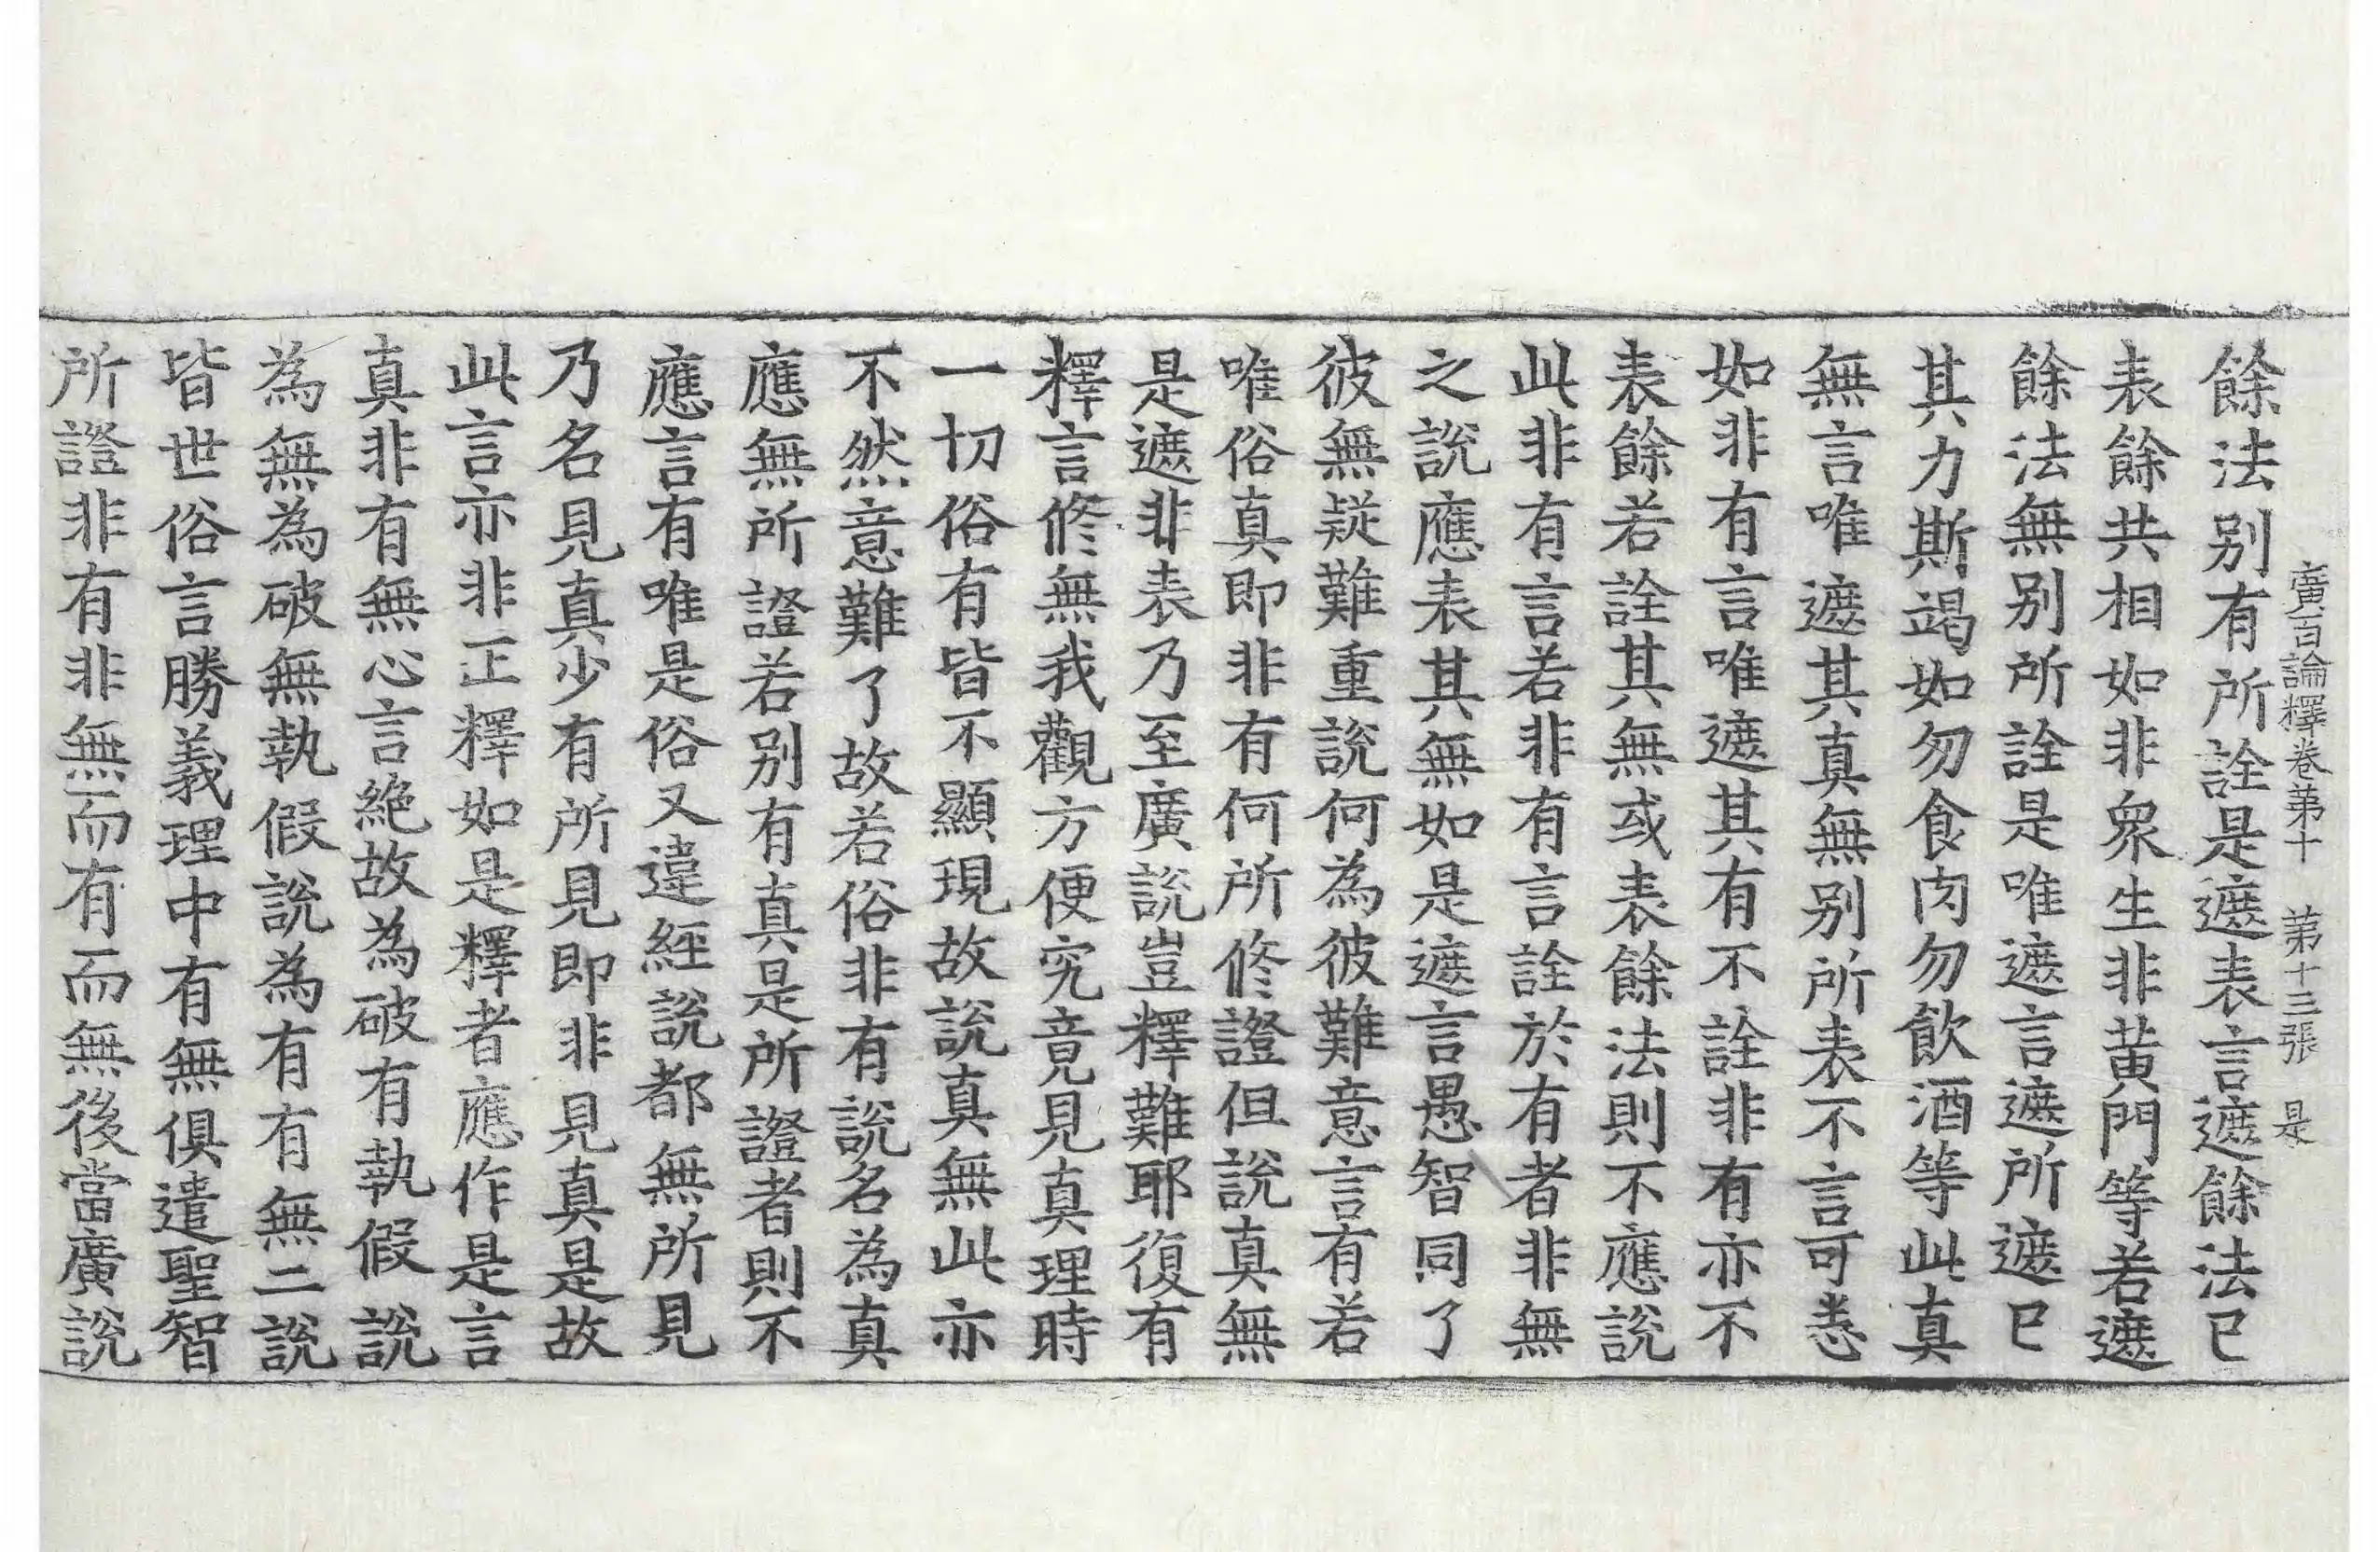 廣百論釋卷第十　第十三張　是
餘法別有所詮是遮表言遮餘法已
表餘共相如非衆生非黃門等若遮
餘法無別所詮是唯遮言遮所遮已
其力斯竭如勿食肉勿飮酒等此真
無言唯遮其真無別所表不言可恚
如非有言唯遮其有不詮非有亦不
表餘若詮其無或表餘法則不應說
此非有言若非有言詮於有者非無
之說應表其無如是遮言愚智同了
彼無疑難重說何為彼難意言有若
唯俗真即非有何所修證但說真無
是遮非表乃至廣說豈釋難耶復有
釋言修無我觀方便究竟見真理時
一切俗有皆不顯現故說真無此亦
不然意難了故若俗非有說名為真
應無所證若別有真是所證者則不
應言有唯是俗又違經說都無所見
乃名見真少有所見即非見真是故
此言亦非正釋如是釋者應作是言
真非有無心言絕故為破有執假說
為無為破無執假說為有有無二說
皆世俗言勝義理中有無俱遣聖智
所證非有非無而有而無後當廣說